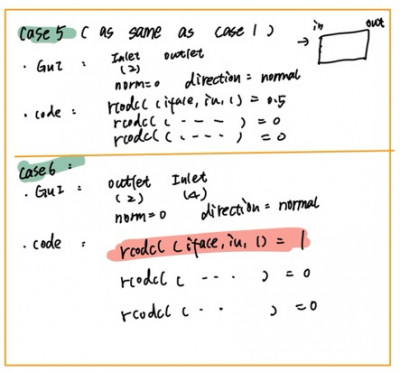 Case 5 ( as same as case 1 )
in out
→
· GUI : Inlet outlet
(2)
norm=0 direction = normal
· code : rcodcl ( iface, iu, 1) = 0.5
rcodcl ( - - - ) = 0
rcodcl ( . - - - ) = 0
Case 6 :
· GUI : outlet Inlet
(2) (4)
norm=0 direction = normal
· code : rcodcl ( iface, iu, 1) = 1
rcodcl ( - - . ) = 0
rcodcl ( . . ) = 0